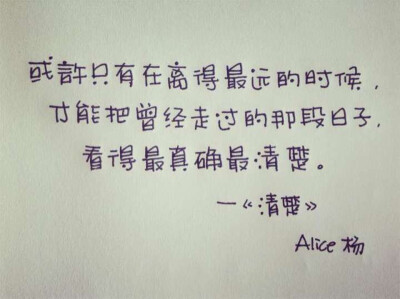 或許只有在离得最远的时候，
才能把曾经走过的那段日子，
看得最真确最清楚。
—《清楚》
Alice 杨